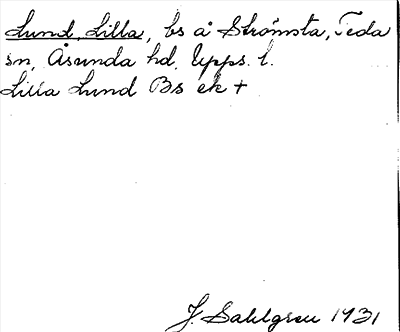 Lund, Lilla, bs å Strömsta, Teda
sn, Åsunda hd. Upps. l.
Lilla Lund Bs ek +
J. Sahlgren 1931